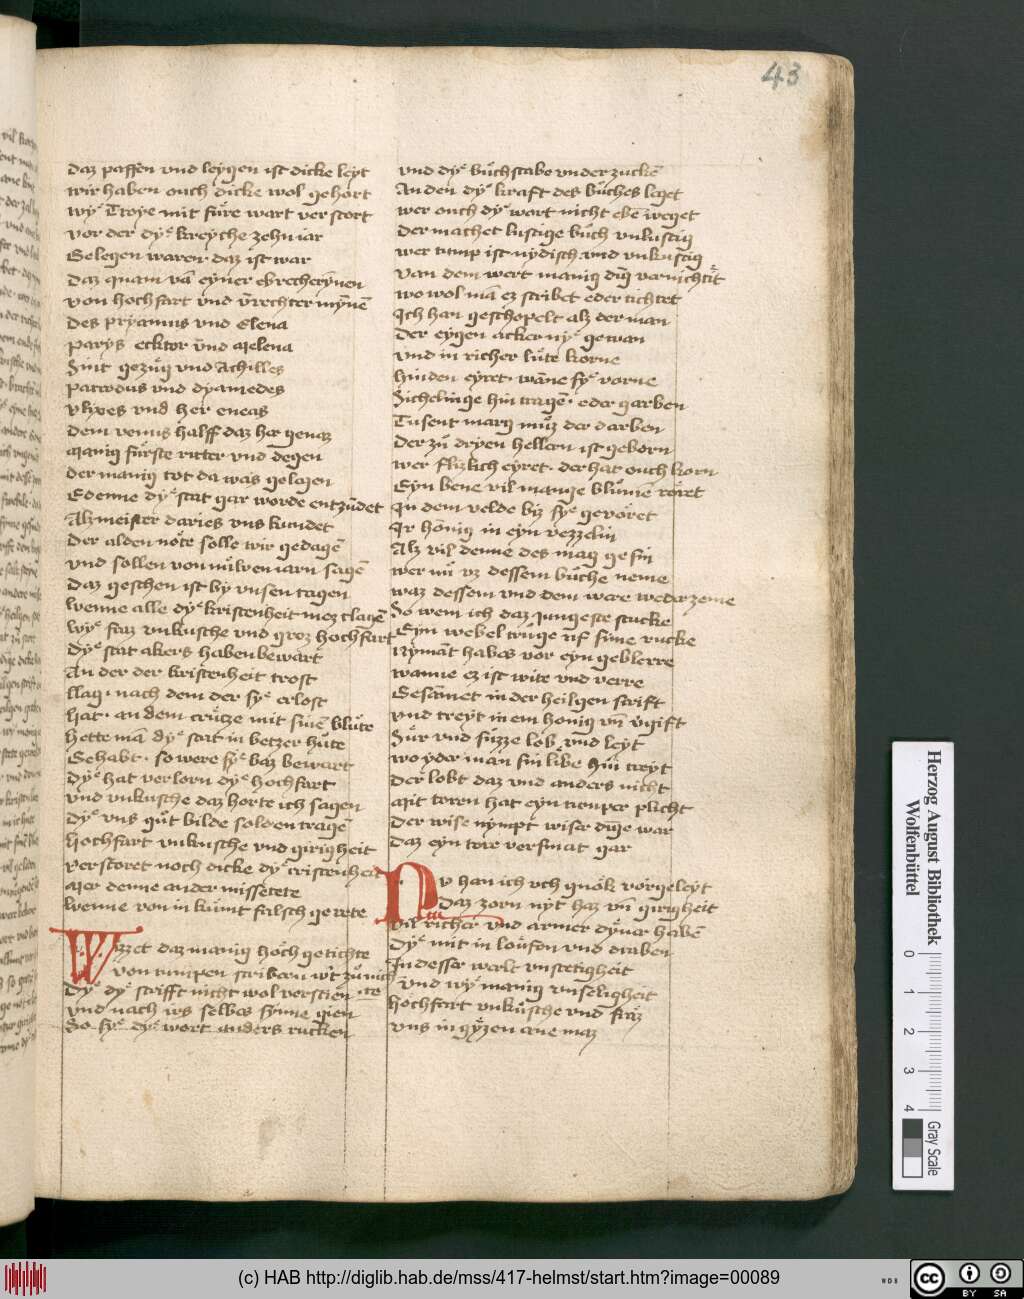 43
daz paffen vnd leygen ist dicke leyt
wir haben ouch dicke wol gehort
wye Troye mit fure wart verstort
vor der dye kreyche zehn iar
Gelegen waren daz ist war
daz quam vā eyner ebrecherynen
von hochfart vnd vnrechter mynnē
des pryamus vnd Elena
parys ecktor vnd Melena
Sint gezug vnd Achilles
patrodus vnd dyamedes
vlyxes vnd her eneas
dem venus halff daz her genaz
Manig furste ritter vnd degen
der manig tot da was gelegen
E denne dye stat gar worde entzudet
Alz meister daries vns kundet
der alden note solle wir gedagē
vnd sollen von nuwen iarn sagē
daz geschen ist by vnsen tagen
wenne alle dye kristenheit mez clagē
wye faz vnkusche vnd groz hochfart
dye stat akers haben bewart
An der der kristenheit trost
llag · nach dem der sye erlost
hat · an dem crutze mit sinē blute
hette mā dye stat in betzer hute
Gehabt · so were sye baz bewart
dye hat verlorn dye hochfart
vnd vnkusche daz horte ich sagen
dye vns gut bilde solden tragē
hochfart vnkusche vnd girigheit
verstoret noch dicke dye cristenheit
Mer denne ander missetete
wenne von in kumt falsch gerete
Wizzet daz manig hoch getichte
von tumpen scribern wt zu nich
te
dye dye scrifft nicht wol versten
vnd nach irs selbes synne gien
So sye dye wort anders rucken
vnd dye buchstabe vnder zuckē
An den dye kraft des buches leget
wer ouch dye wort nicht ebē weget
der machet lustige buch vnlustig
wer tump ist nydisch vnd vnkustig
van dem wert manig dīg vernichtit
wo wol mā ez scribet eder tichtet
Ich han geschopelt alz der man
der eygen acker nye gewan
vnd in richer lute korne
hinden eyret · wāne sye vorne
Sichelinge hin tragē · eder garben
Tusent marg muz der darben
der zu dryen hellern ist geborn
wer flizlich eyret · der hat ouch korn
Eyn bene vil mange blumē roret
In dem velde biz sye gevoret
Ir honig in eyn vezzelin
Alz vil denne des mag gesin
wer nu vz dessem buche neme
waz dessem vnd dem were wederzeme
So wem ich daz jungeste stucke
Eyn webel truge vf sine rucke
Nymāt habes vor eyn geblerre
wanne ez ist wite vnd verre
Gesāmet in der heilgen scrift
vnd treyt in em honig vn vgift
Sur vnd suzze lob vnd leyt
wo yder man sin libe hin treyt
der lobt daz vnd anders nicht
Mit toren hat eyn tumper plicht
der wise nympt wiser dīge war
daz eyn tore versmat gar
Nv han ich vch gnok vorgeleyt
daz zorn nyt haz vn girigheit
vil richer vnd armer dyner habē
dye mit in loufen vnd draben
In desser werlt vnstetigheit
vnd wye manig vnseligheit
hochfart vnkusche vnd fraz
vns in gyzen ane maz
Herzog August Bibliothek
Wolfenbüttel
0 1 2 3 4
Gray Scale
(c) HAB http://diglib.hab.de/mss/417-helmst/start.htm?image=00089
WDB
cc
BY SA